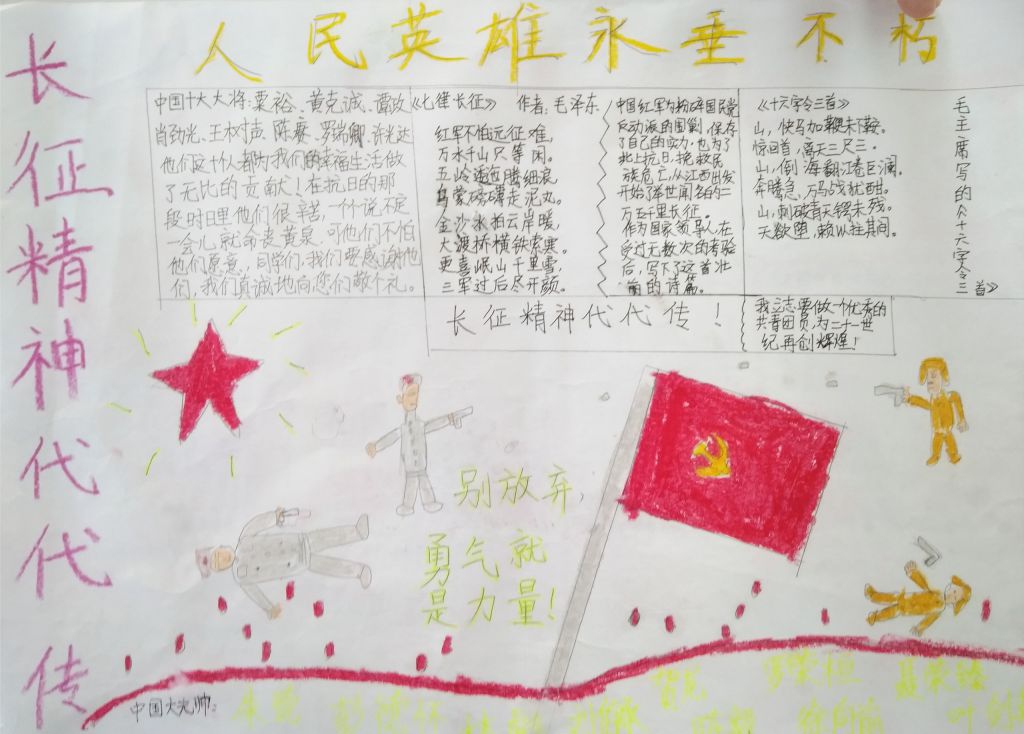 人民英雄永垂不朽
长征精神代代传
中国十大大将:粟裕、黄克诚、谭政
肖劲光、王树声、陈赓、罗瑞卿、许光达
他们这十人都为我们的幸福生活做
了无比的贡献!在抗日的那
段时日里他们很辛苦,一个说不定
一会儿就命丧黄泉.可他们不怕
他们愿意,同学们,我们要感谢他
们,我们真诚地向您们敬个礼。
《七律长征》 作者:毛泽东
红军不怕远征难,
万水千山只等闲。
五岭逶迤腾细浪,
乌蒙磅礴走泥丸。
金沙水拍云岸暖,
大渡桥横铁索寒。
更喜岷山千里雪,
三军过后尽开颜。
中国红军为粉碎国民党
反动派的围剿,保存
了自己的实力,也为了
北上抗日,挽救民
族危亡,从江西出发
开始了举世闻名的二
万五千里长征。
作为国家领导人在
受过无数次的考验
后,写下了这首壮
丽的诗篇。
《十六字令三首》
山,快马加鞭未下鞍。
惊回首,离天三尺三。
山,倒海翻江卷巨澜。
奔腾急,万马战犹酣。
山,刺破青天锷未残。
天欲堕,赖以拄其间。
毛主席写的《十六字令三首》
长征精神代代传!
我立志要做一个优秀的
共青团员,为二十一世
纪再创辉煌!
别放弃,
勇气就
是力量!
中国大元帅:
朱德 彭德怀 刘伯承 贺龙 陈毅 罗荣桓 徐向前 聂荣臻 叶剑